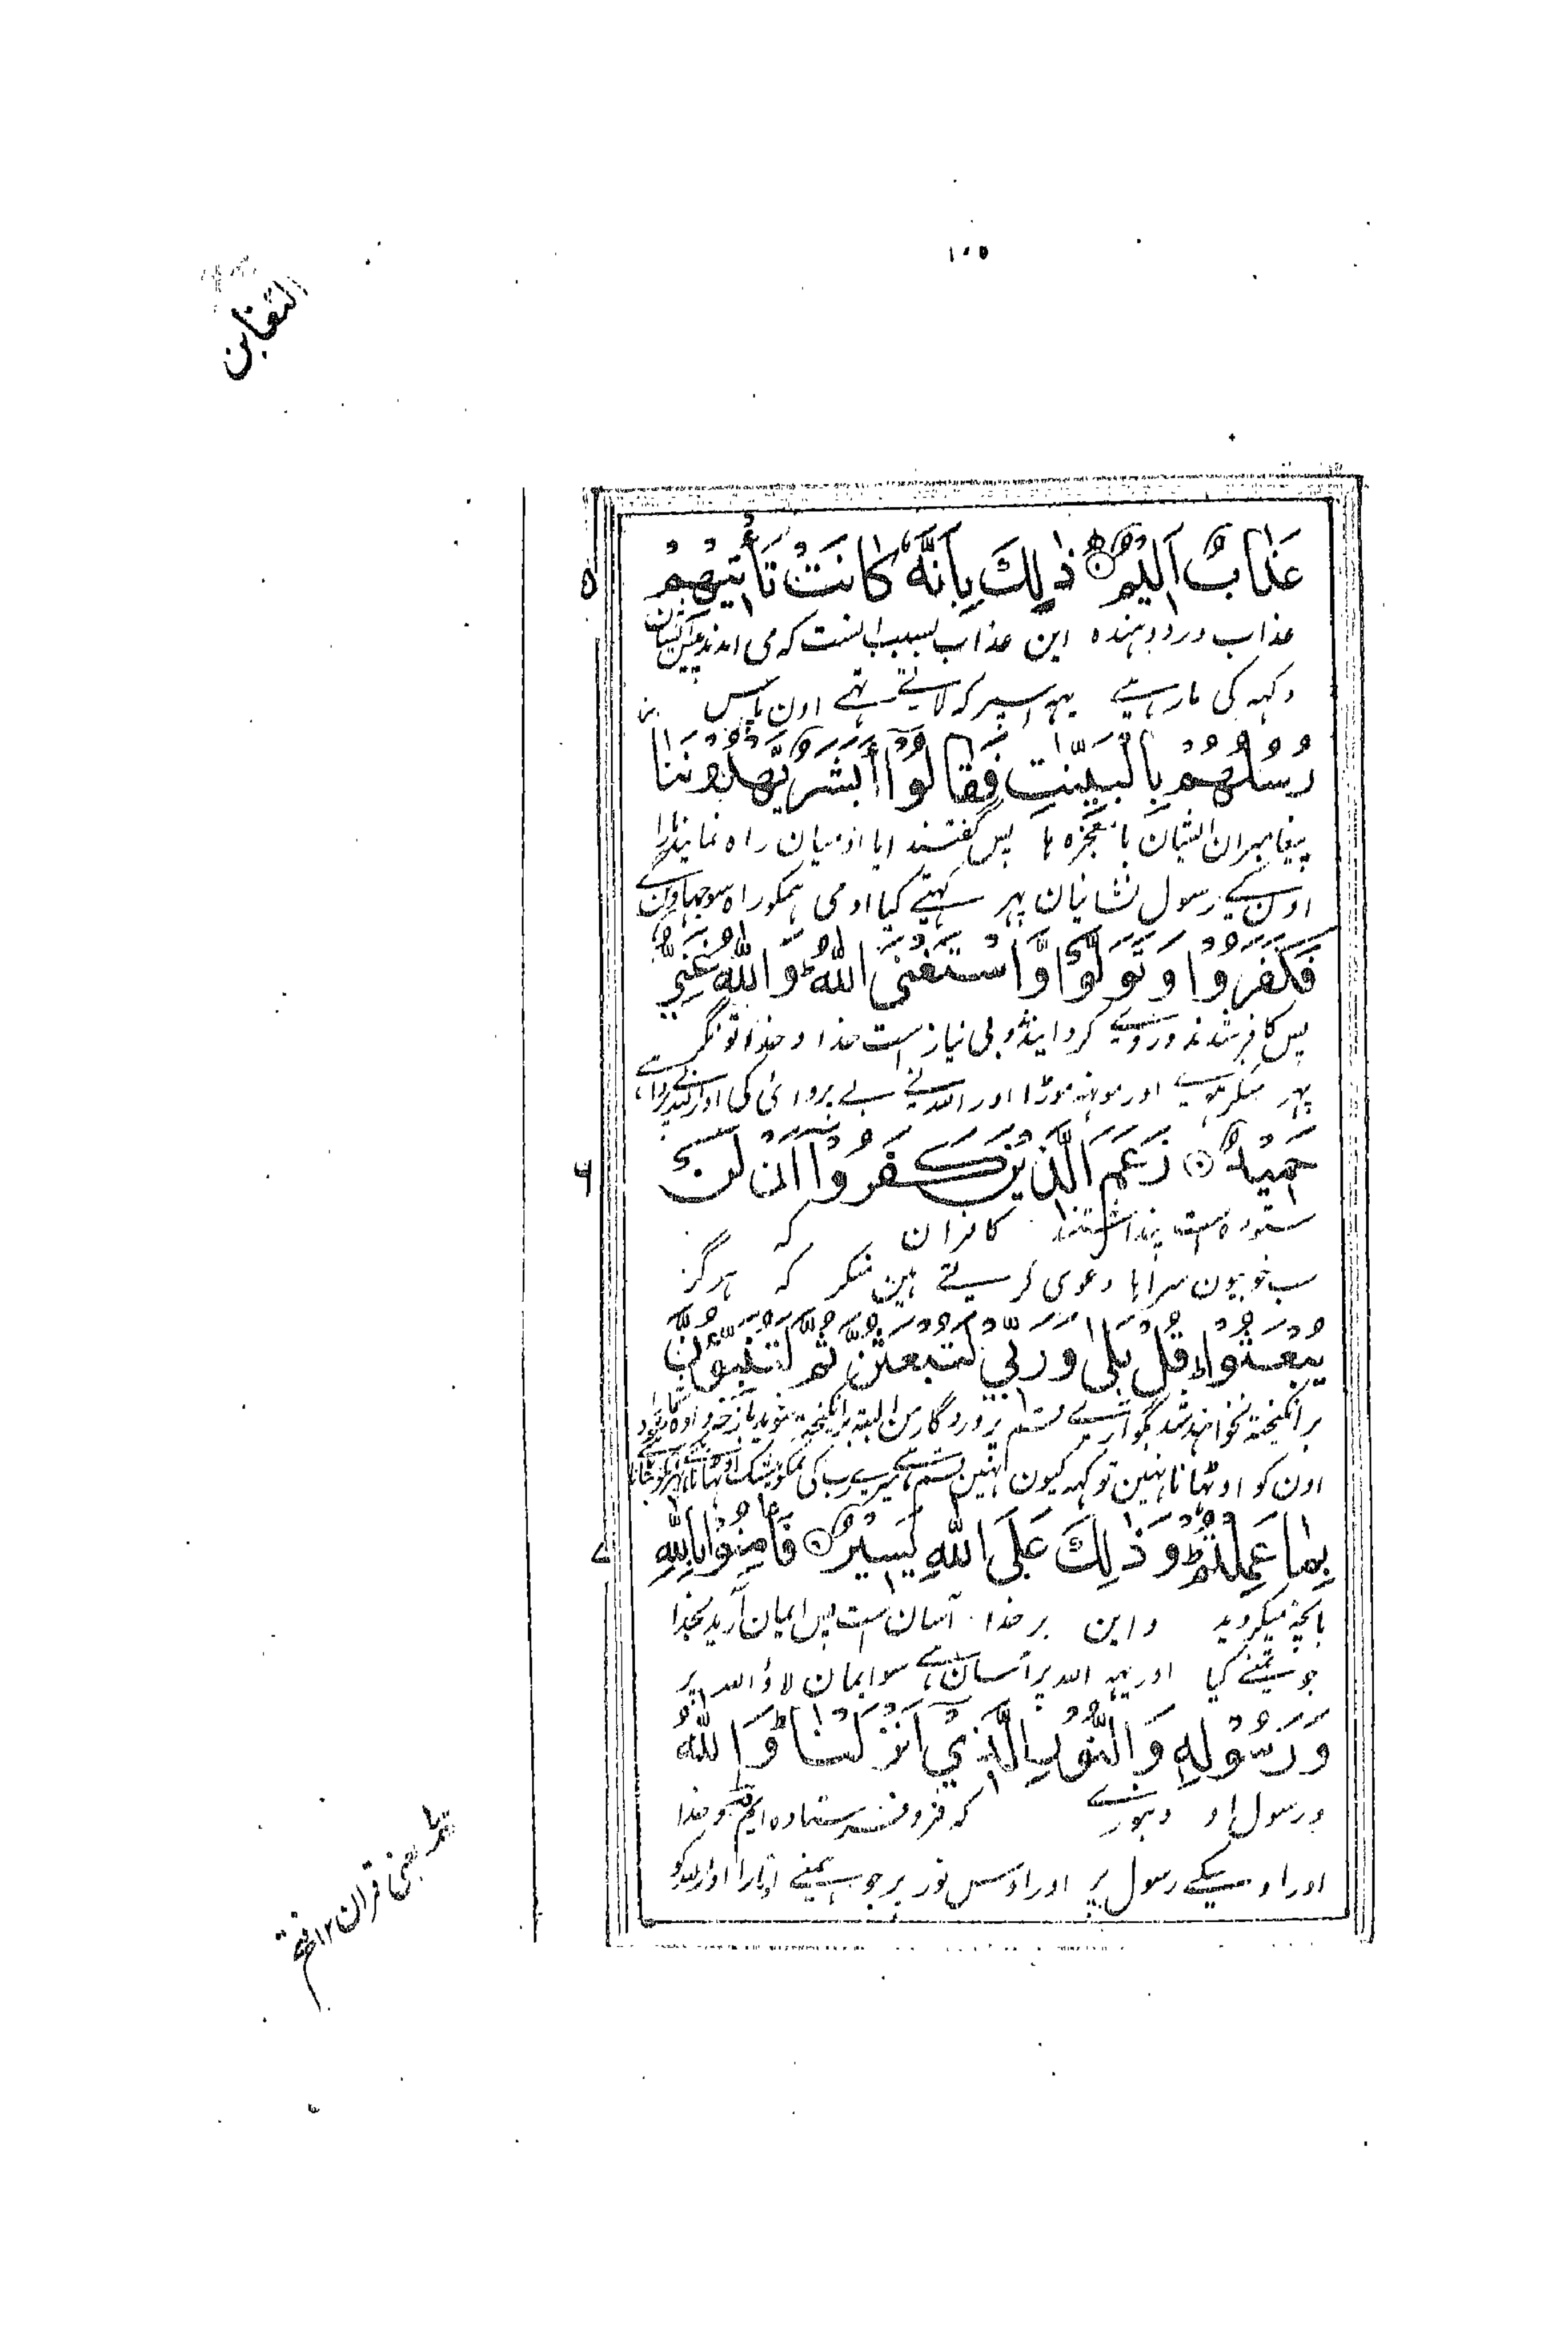 ١٠٥
التغابن
عَذَابٌ اَلِيْمٌ ۝ ذٰلِكَ بِاَنَّهٗ كَانَتْ تَأْتِيْهِمْ
۵
عذاب درد دہندہ این عذاب بسبب انست کہ می امدند پیش ایشان
دکہہ کی مار ہے یہہ اسپر کہ لاتے تہے اون پاس
رُسُلُهُمْ بِالْبَيِّنٰتِ فَقَالُوْٓا اَبَشَرٌ يَّهْدُوْنَنَا
پیغامبران ایشان با معجزہ ہا پس گفتند ایا ادمیان راہ نمایند ما را
اون کے رسول نشانیان پہر کہتے کیا ادمی ہمکو راہ سوجہاوین گے
فَكَفَرُوْا وَتَوَلَّوْا وَّاسْتَغْنَى اللّٰهُ ؕ وَاللّٰهُ غَنِيٌّ
پس کافر شدند و روے کردانیدند و بی نیاز است خدا و خدا تونگر
پہر منکر ہوے اور مونہہ موڑا اور اللہ نے بے پروائی کی اور اللہ بے پروا ہے
حَمِيْدٌ ۝ زَعَمَ الَّذِيْنَ كَفَرُوْٓا اَنْ لَّنْ
۶
ستودہ است پنداشتند کافران کہ
سب خوبیون سراہا دعوی کرتے ہین منکر کہ ہرگز
يُّبْعَثُوْا ؕ قُلْ بَلٰى وَرَبِّيْ لَتُبْعَثُنَّ ثُمَّ لَتُنَبَّؤُنَّ
برانگیختہ نخواہند شد بگو آرے قسم پروردگار من البتہ برانگیختہ شوید باز خبر دادہ شوید
اون کو اوٹہانا نہین تو کہہ کیون نہین قسم ہے میرے رب کی تمکو بیشک اوٹہانا ہے
بِمَا عَمِلْتُمْ ؕ وَذٰلِكَ عَلَى اللّٰهِ يَسِيْرٌ ۝ فَاٰمِنُوْا بِاللّٰهِ
۷
بانچہ میکردید و این بر خدا آسان است پس ایمان آرید بخدا
جو تمنے کیا اور یہہ اللہ پر آسان ہے سو ایمان لاؤ اللہ پر
وَرَسُوْلِهٖ وَالنُّوْرِ الَّذِيْٓ اَنْزَلْنَا ؕ وَاللّٰهُ
و رسول او و بنورے کہ فرو فرستادہ ایم و خدا
اور اوسکے رسول پر اور اوس نور پر جو ہمنے اتارا اور اللہ کو
یعنی قران ۱۲